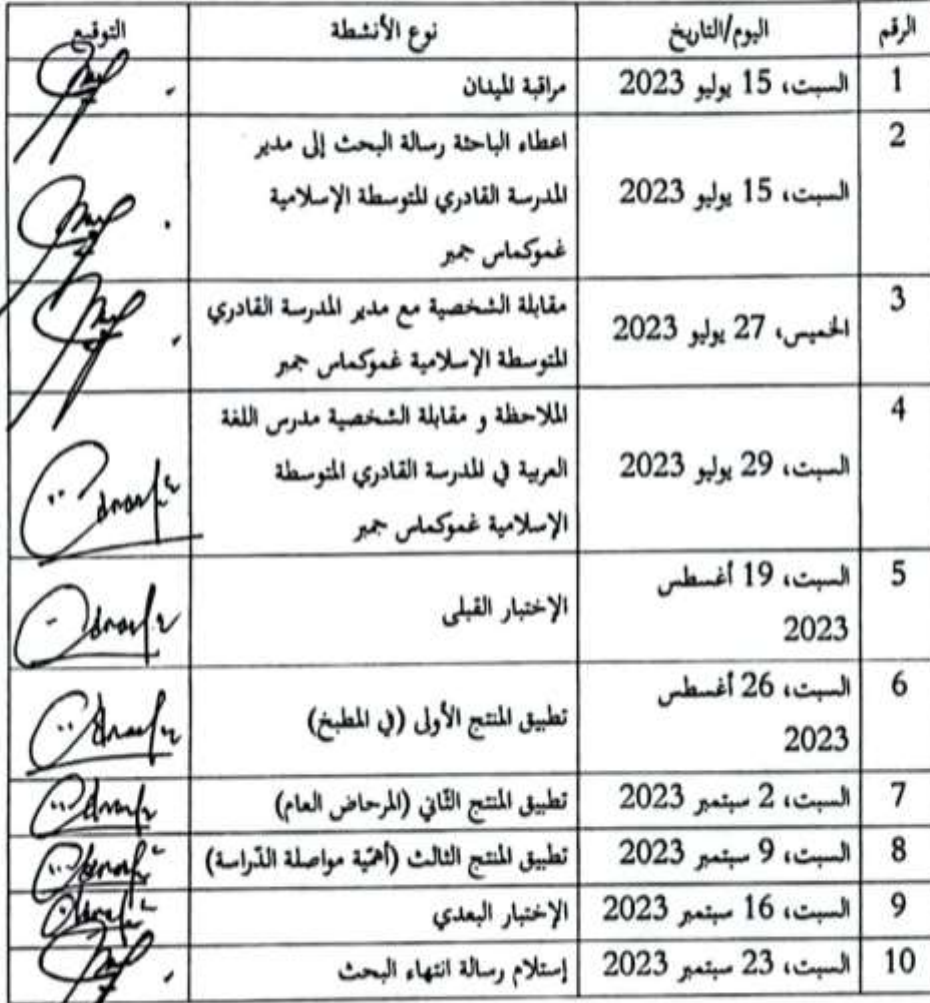 الرقم اليوم/التاريخ نوع الأنشطة التوقيع
1 السبت، 15 يوليو 2023 مراقبة الميدان
2 السبت، 15 يوليو 2023 اعطاء الباحثة رسالة البحث إلى مدير
المدرسة القادري المتوسطة الإسلامية
غموكماس جمبر
3 الخميس، 27 يوليو 2023 مقابلة الشخصية مع مدير المدرسة القادري
المتوسطة الإسلامية غموكماس جمبر
4 السبت، 29 يوليو 2023 الملاحظة و مقابلة الشخصية مدرس اللغة
العربية في المدرسة القادري المتوسطة
الإسلامية غموكماس جمبر
5 السبت، 19 أغسطس
2023 الإختبار القبلى
6 السبت، 26 أغسطس
2023 تطبيق المنتج الأولى (في المطبخ)
7 السبت، 2 سبتمبر 2023 تطبيق المنتج الثّاني (المرحاض العام)
8 السبت، 9 سبتمبر 2023 تطبيق المنتج الثالث (أهمّية مواصلة الدّراسة)
9 السبت، 16 سبتمبر 2023 الإختبار البعدي
10 السبت، 23 سبتمبر 2023 إستلام رسالة انتهاء البحث